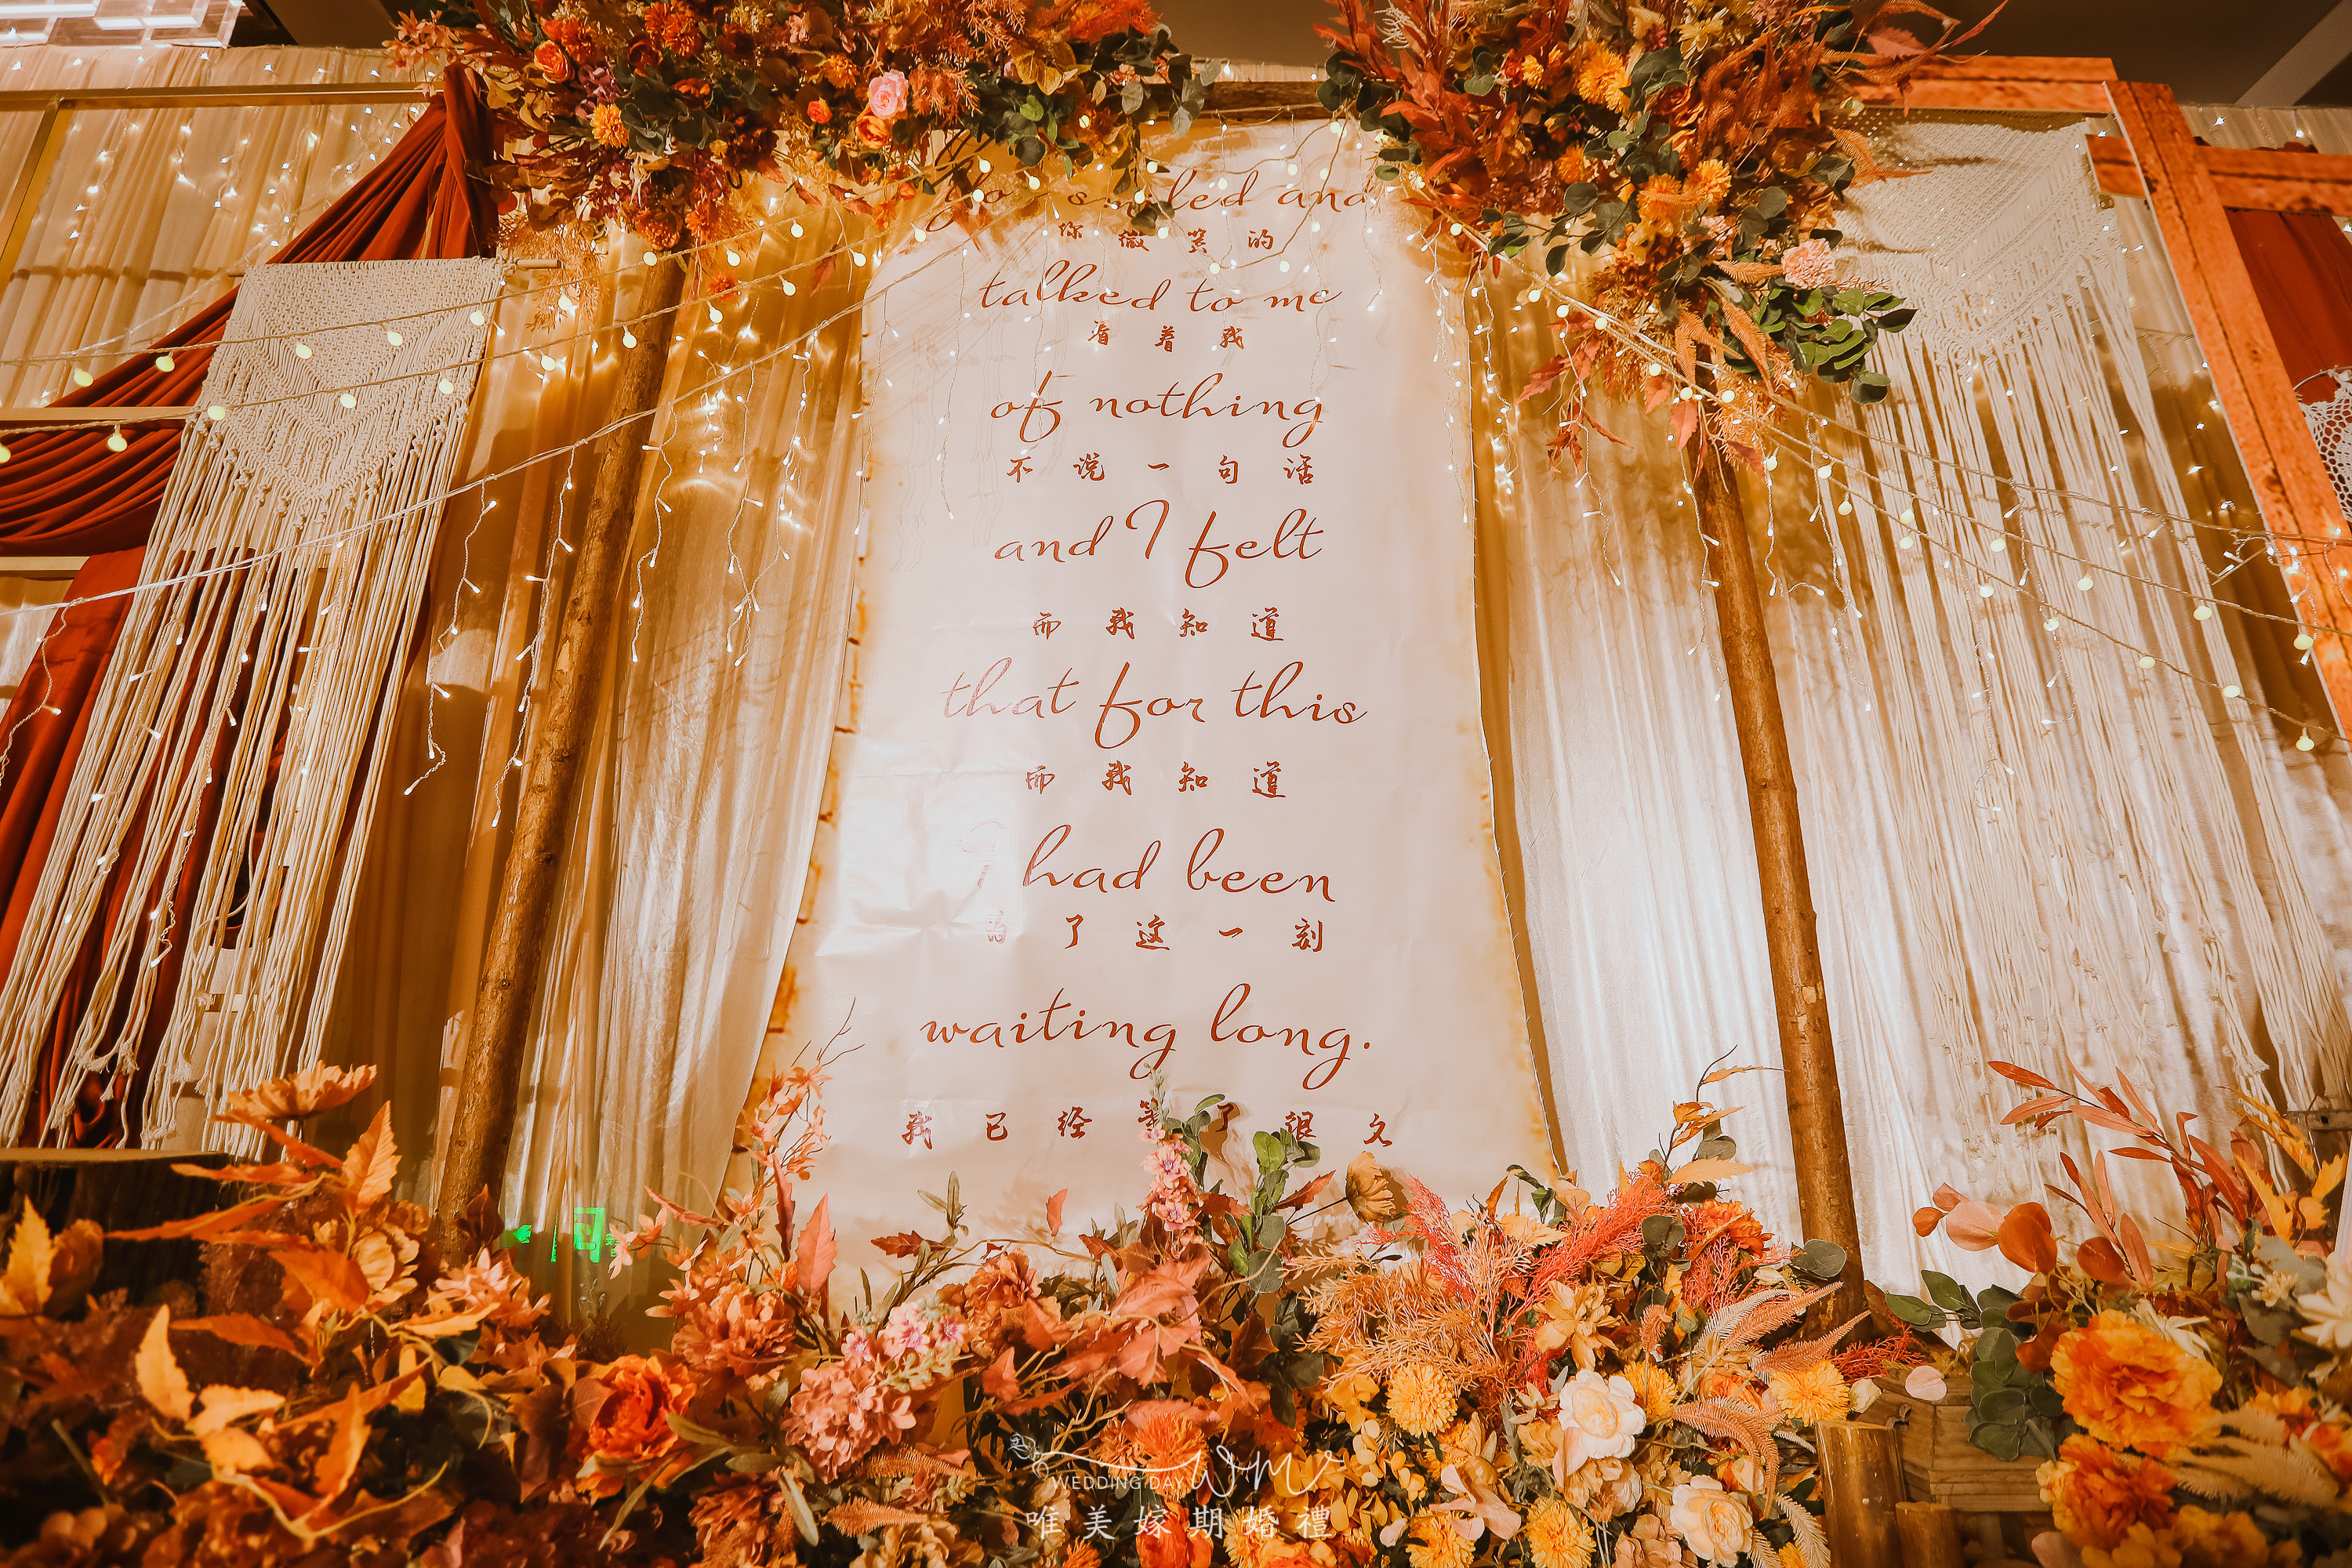 you smiled and
你微笑的
talked to me
看着我
of nothing
不说一句话
and I felt
而我知道
that for this
而我知道
I had been
为了这一刻
waiting long.
我已经等了很久
WEDDING DAY WM
唯美嫁期婚禮